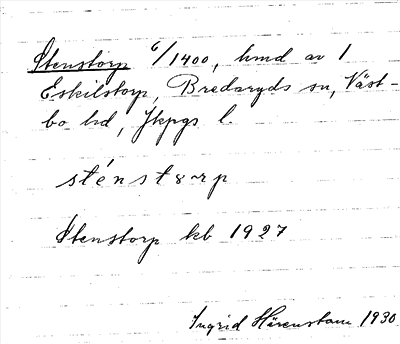 Stenstorp 6/1400, hmd av 1
Eskilstorp, Bredaryds sn, Väst-
bo hd, Jkpgs l.
sténstɷrp
Stenstorp kb 1927
Ingrid Härenstam 1930